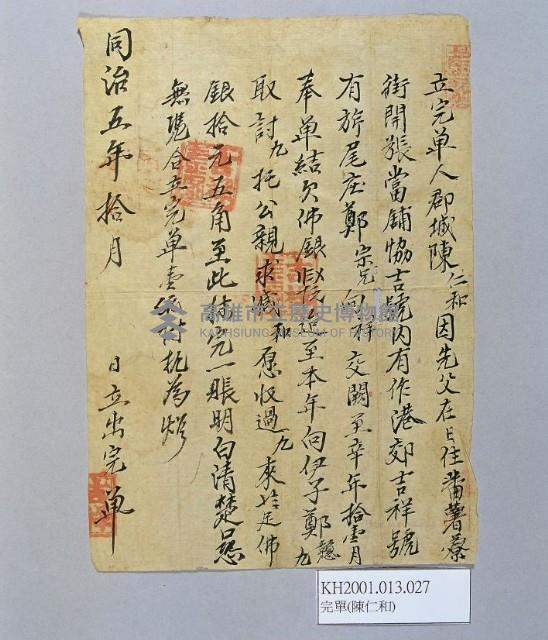 立完单人郡城陳仁和因先父在日住蕃薯藔
街開張當舖協吉號内有作港郊吉祥號
有旂尾庄鄭宗 交関至辛年拾壹月
奉单結欠佛銀 至本年向伊子鄭聽
取討九托公親求減和愿收過九來 足佛
銀拾元五角至此持完一賬明白清楚口恐
無憑合立完单壹紙执為炤
同治五年拾月 日立出完单
高雄市立歷史博物館
KAOHSIUNG MUSEUM OF HISTORY
KH2001.013.027
完單(陳仁和)